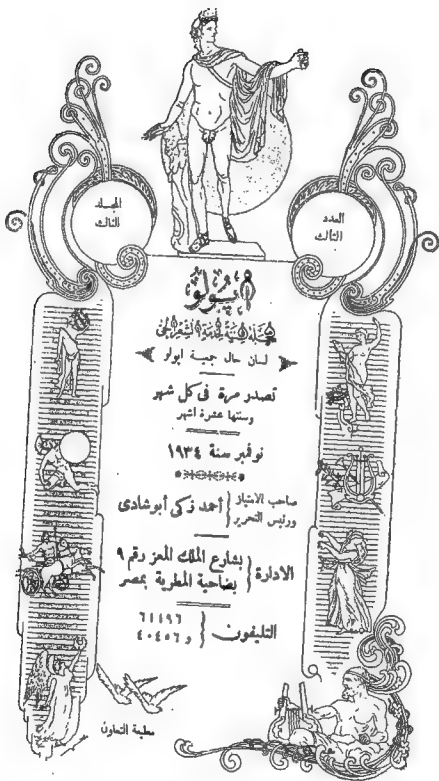 العدد
الثالث
المجلد
الثالث
أپولو
مجلة أدبية لخدمة الشعر الحي
لسان حال جمعية ابولو
تصدر مرة فى كل شهر
وسنتها عشرة اشهر
نوفمبر سنة ١٩٣٤
صاحب الامتياز
ورئيس التحرير { أحمد زكى أبوشادى
الادارة { بشارع الملك المعز رقم ٩
بضاحية المطرية بمصر
التليفون { ٦١١٩٦
و ٤٠٤٥٦
مطبعة التعاون